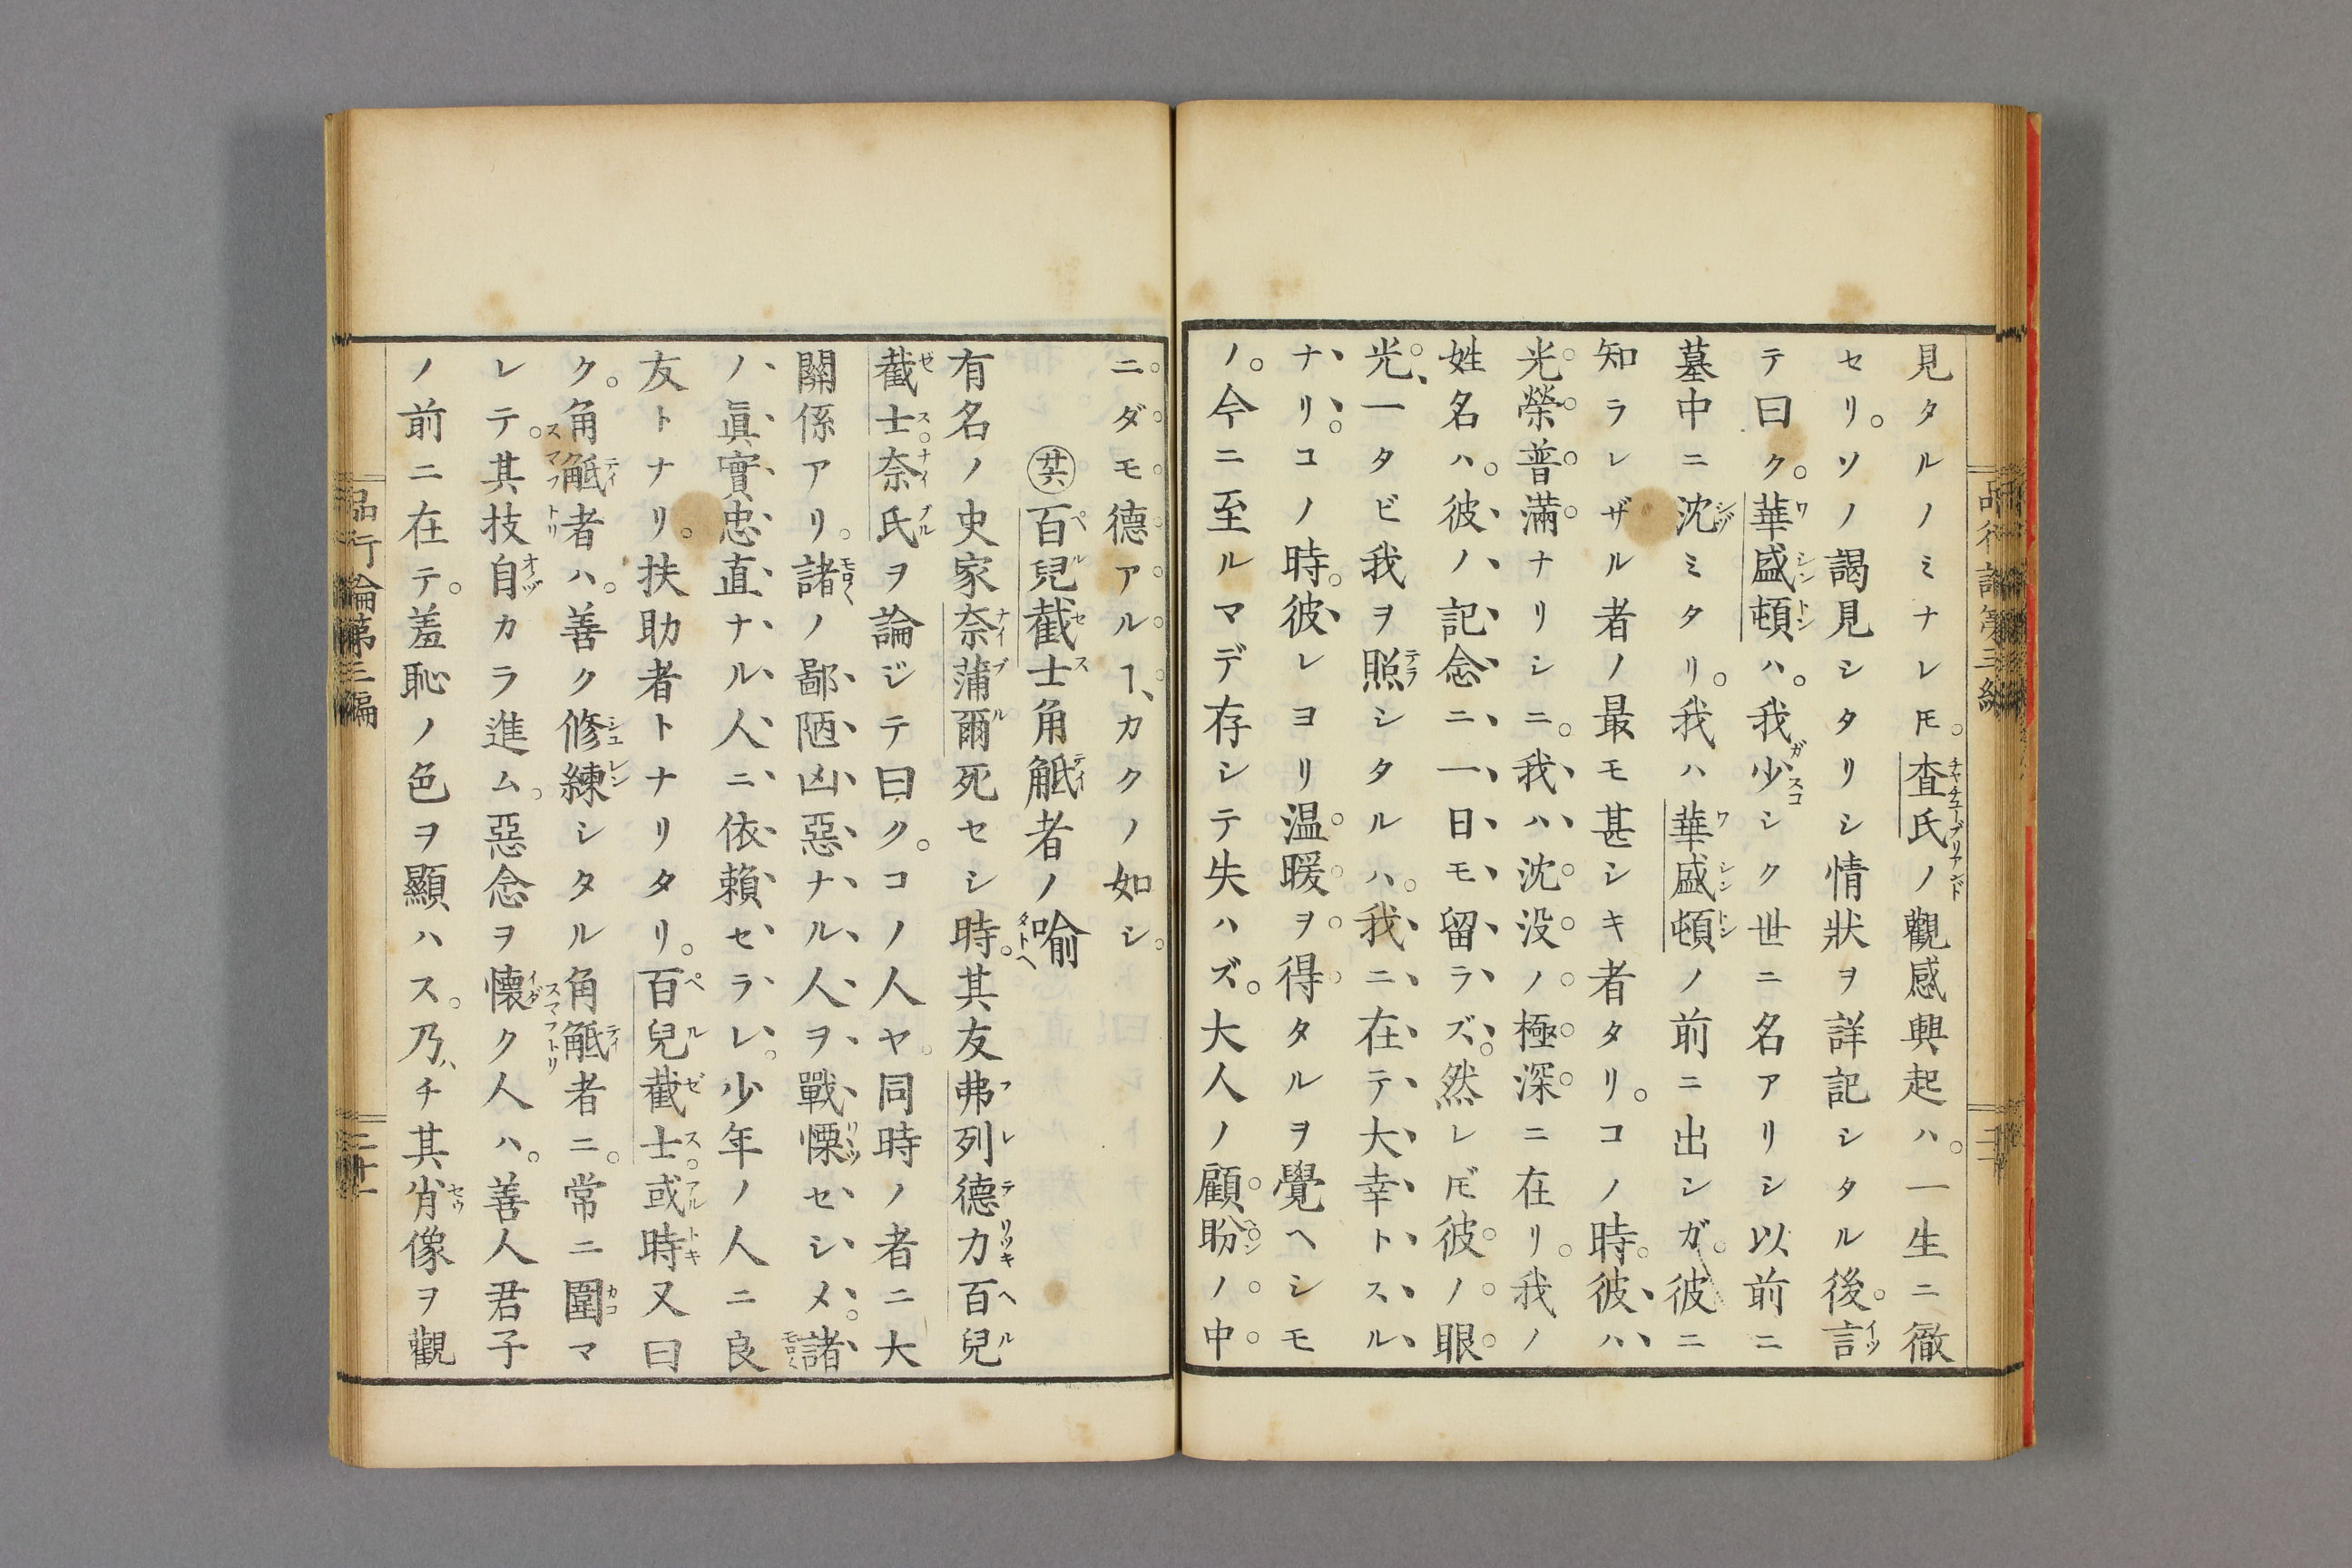 見タルノミナレ𪜈。査氏ノ觀感興起ハ。一生ニ徹
セリ。ソノ謁見シタリシ情狀ヲ詳記シタル後。言
テ曰ク。華盛頓ハ。我少シク世ニ名アリシ以前ニ
墓中ニ沈ミタリ。我ハ華盛頓ノ前ニ出シガ。彼ニ
知ラレザル者ノ最モ甚シキ者タリ。コノ時。彼ハ
光榮普滿ナリシニ。我ハ沈没ノ極深ニ在リ。我ノ
姓名ハ。彼ノ記念ニ一日モ留ラズ。然レ𪜈彼ノ眼
光。一タビ我ヲ照シタルハ。我ニ在テ大幸トスル
ナリ。コノ時。彼レヨリ温暖ヲ得タルヲ覺ヘシモ
ノ。今ニ至ルマデ存シテ失ハズ。大人ノ顧盼ノ中
ニダモ德アルヿ、カクノ如シ。
㊅ 百兒截士角觝者ノ喩
有名ノ史家奈蒲爾死セシ時。其友弗列德力百兒
截士。奈氏ヲ論ジテ曰ク。コノ人ヤ。同時ノ者ニ大
關係アリ。諸ノ鄙陋凶惡ナル人ヲ戰慄セシメ。諸
ノ眞實忠直ナル人ニ依賴セラレ。少年ノ人ニ良
友トナリ。扶助者トナリタリ。百兒截士。或時又曰
ク。角觝者ハ。善ク修練シタル角觝者ニ。常ニ圍マ
レテ。其技自カラ進ム。惡念ヲ懷ク人ハ。善人君子
ノ前ニ在テ。羞恥ノ色ヲ顯ハス。乃チ其肖像ヲ觀
品行論第三編